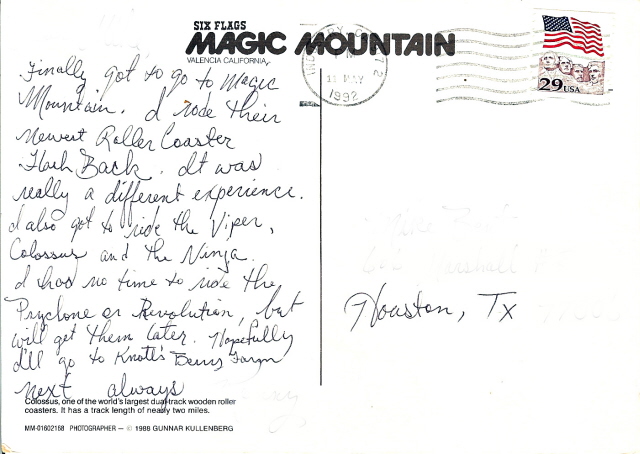 SIX FLAGS
MAGIC MOUNTAIN
VALENCIA CALIFORNIA
Finally got to go to Magic
Mountain. I rode their
newest Roller Coaster
Flash Back. It was
really a different experience.
I also got to ride the Viper,
Colossus and the Ninja.
I had no time to ride the
Psyclone or Revolution, but
will get them later. Hopefully
I'll go to Knott's Berry Farm
next always
Colossus, one of the world's largest dual-track wooden roller
coasters. It has a track length of nearly two miles.
MM-01602168 PHOTOGRAPHER — © 1988 GUNNAR KULLENBERG
MAY
1992
29 USA
Houston, Tx